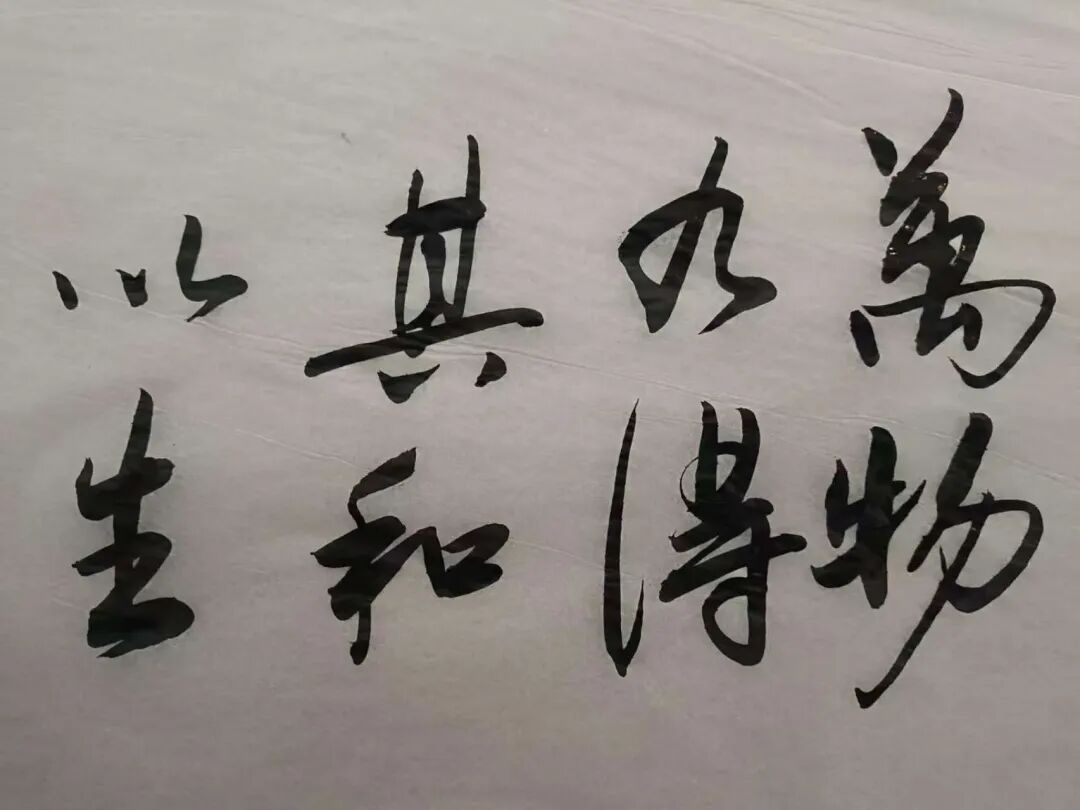 萬物
各得
其和
以生